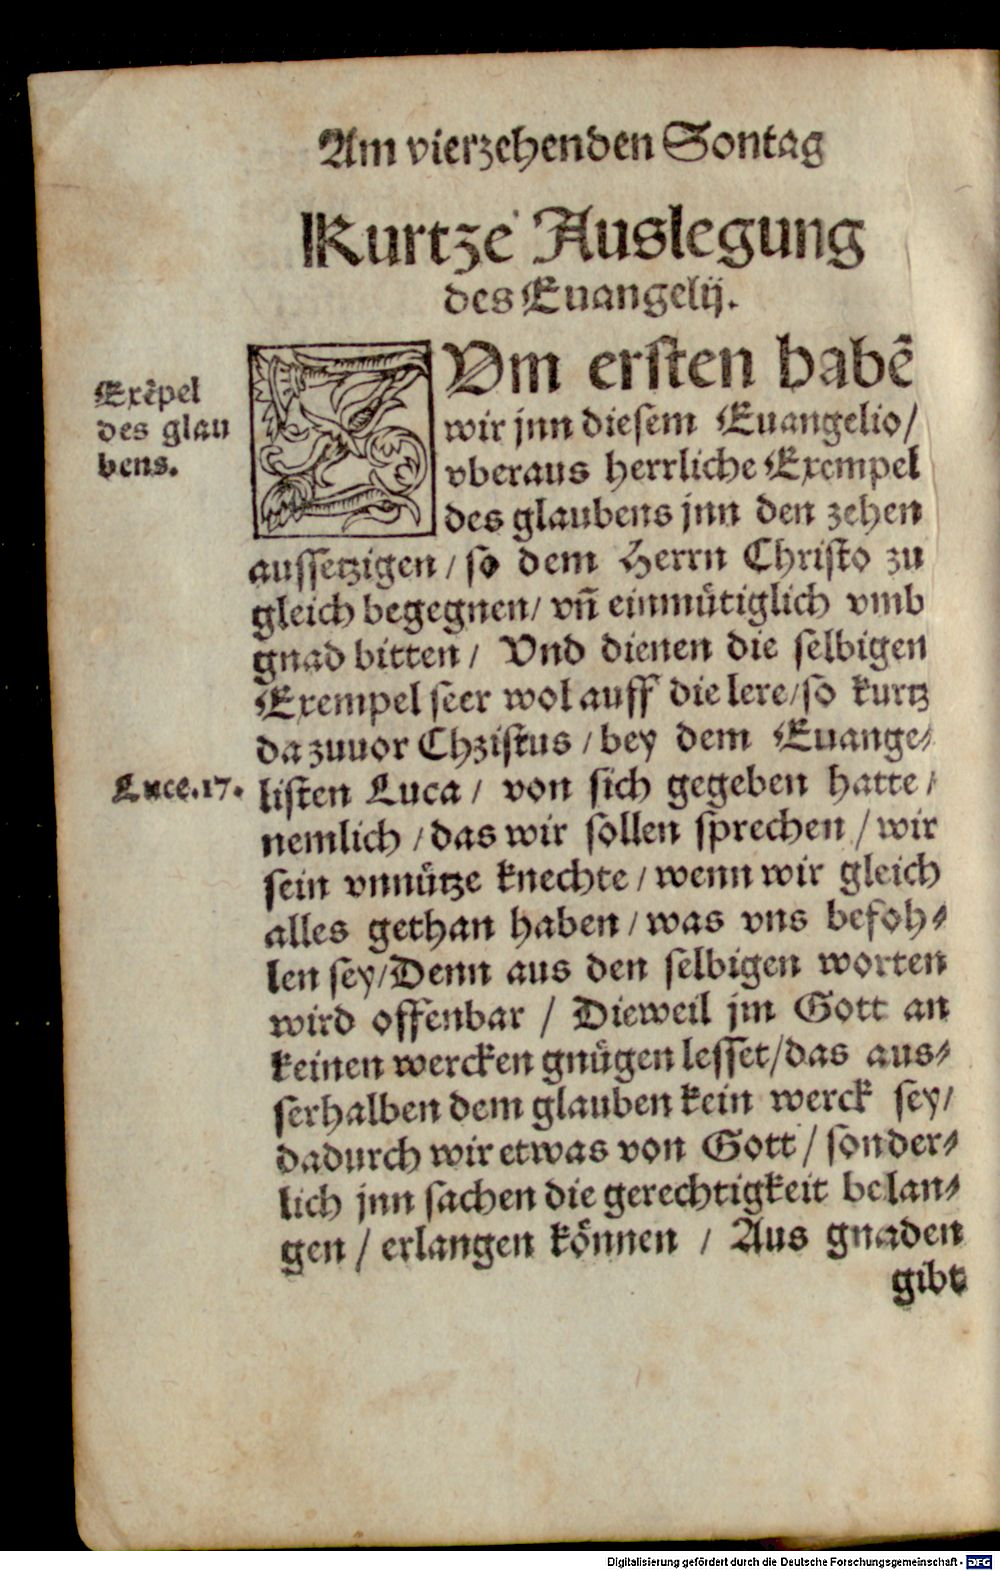 Am vierzehenden Sontag
Kurtze Auslegung
des Euangelij.
Exẽpel
des glau
bens.
ZVm ersten habẽ
wir jnn diesem Euangelio/
vberaus herrliche Exempel
des glaubens jnn den zehen
aussetzigen / so dem Herrn Christo zu
gleich begegnen / vñ einmütiglich vmb
gnad bitten / Vnd dienen die selbigen
Exempel seer wol auff die lere / so kurtz
da zuuor Chzistus / bey dem Euange⸗
Luce.17.
listen Luca / von sich gegeben hatte /
nemlich / das wir sollen sprechen / wir
sein vnnütze knechte / wenn wir gleich
alles gethan haben / was vns befoh⸗
len sey / Denn aus den selbigen worten
wird offenbar / Dieweil jm Gott an
keinen wercken gnügen lesset / das aus⸗
serhalben dem glauben kein werck sey /
dadurch wir etwas von Gott / sonder⸗
lich jnn sachen die gerechtigkeit belan⸗
gen / erlangen können / Aus gnaden
gibt
Digitalisierung gefördert durch die Deutsche Forschungsgemeinschaft - DFG